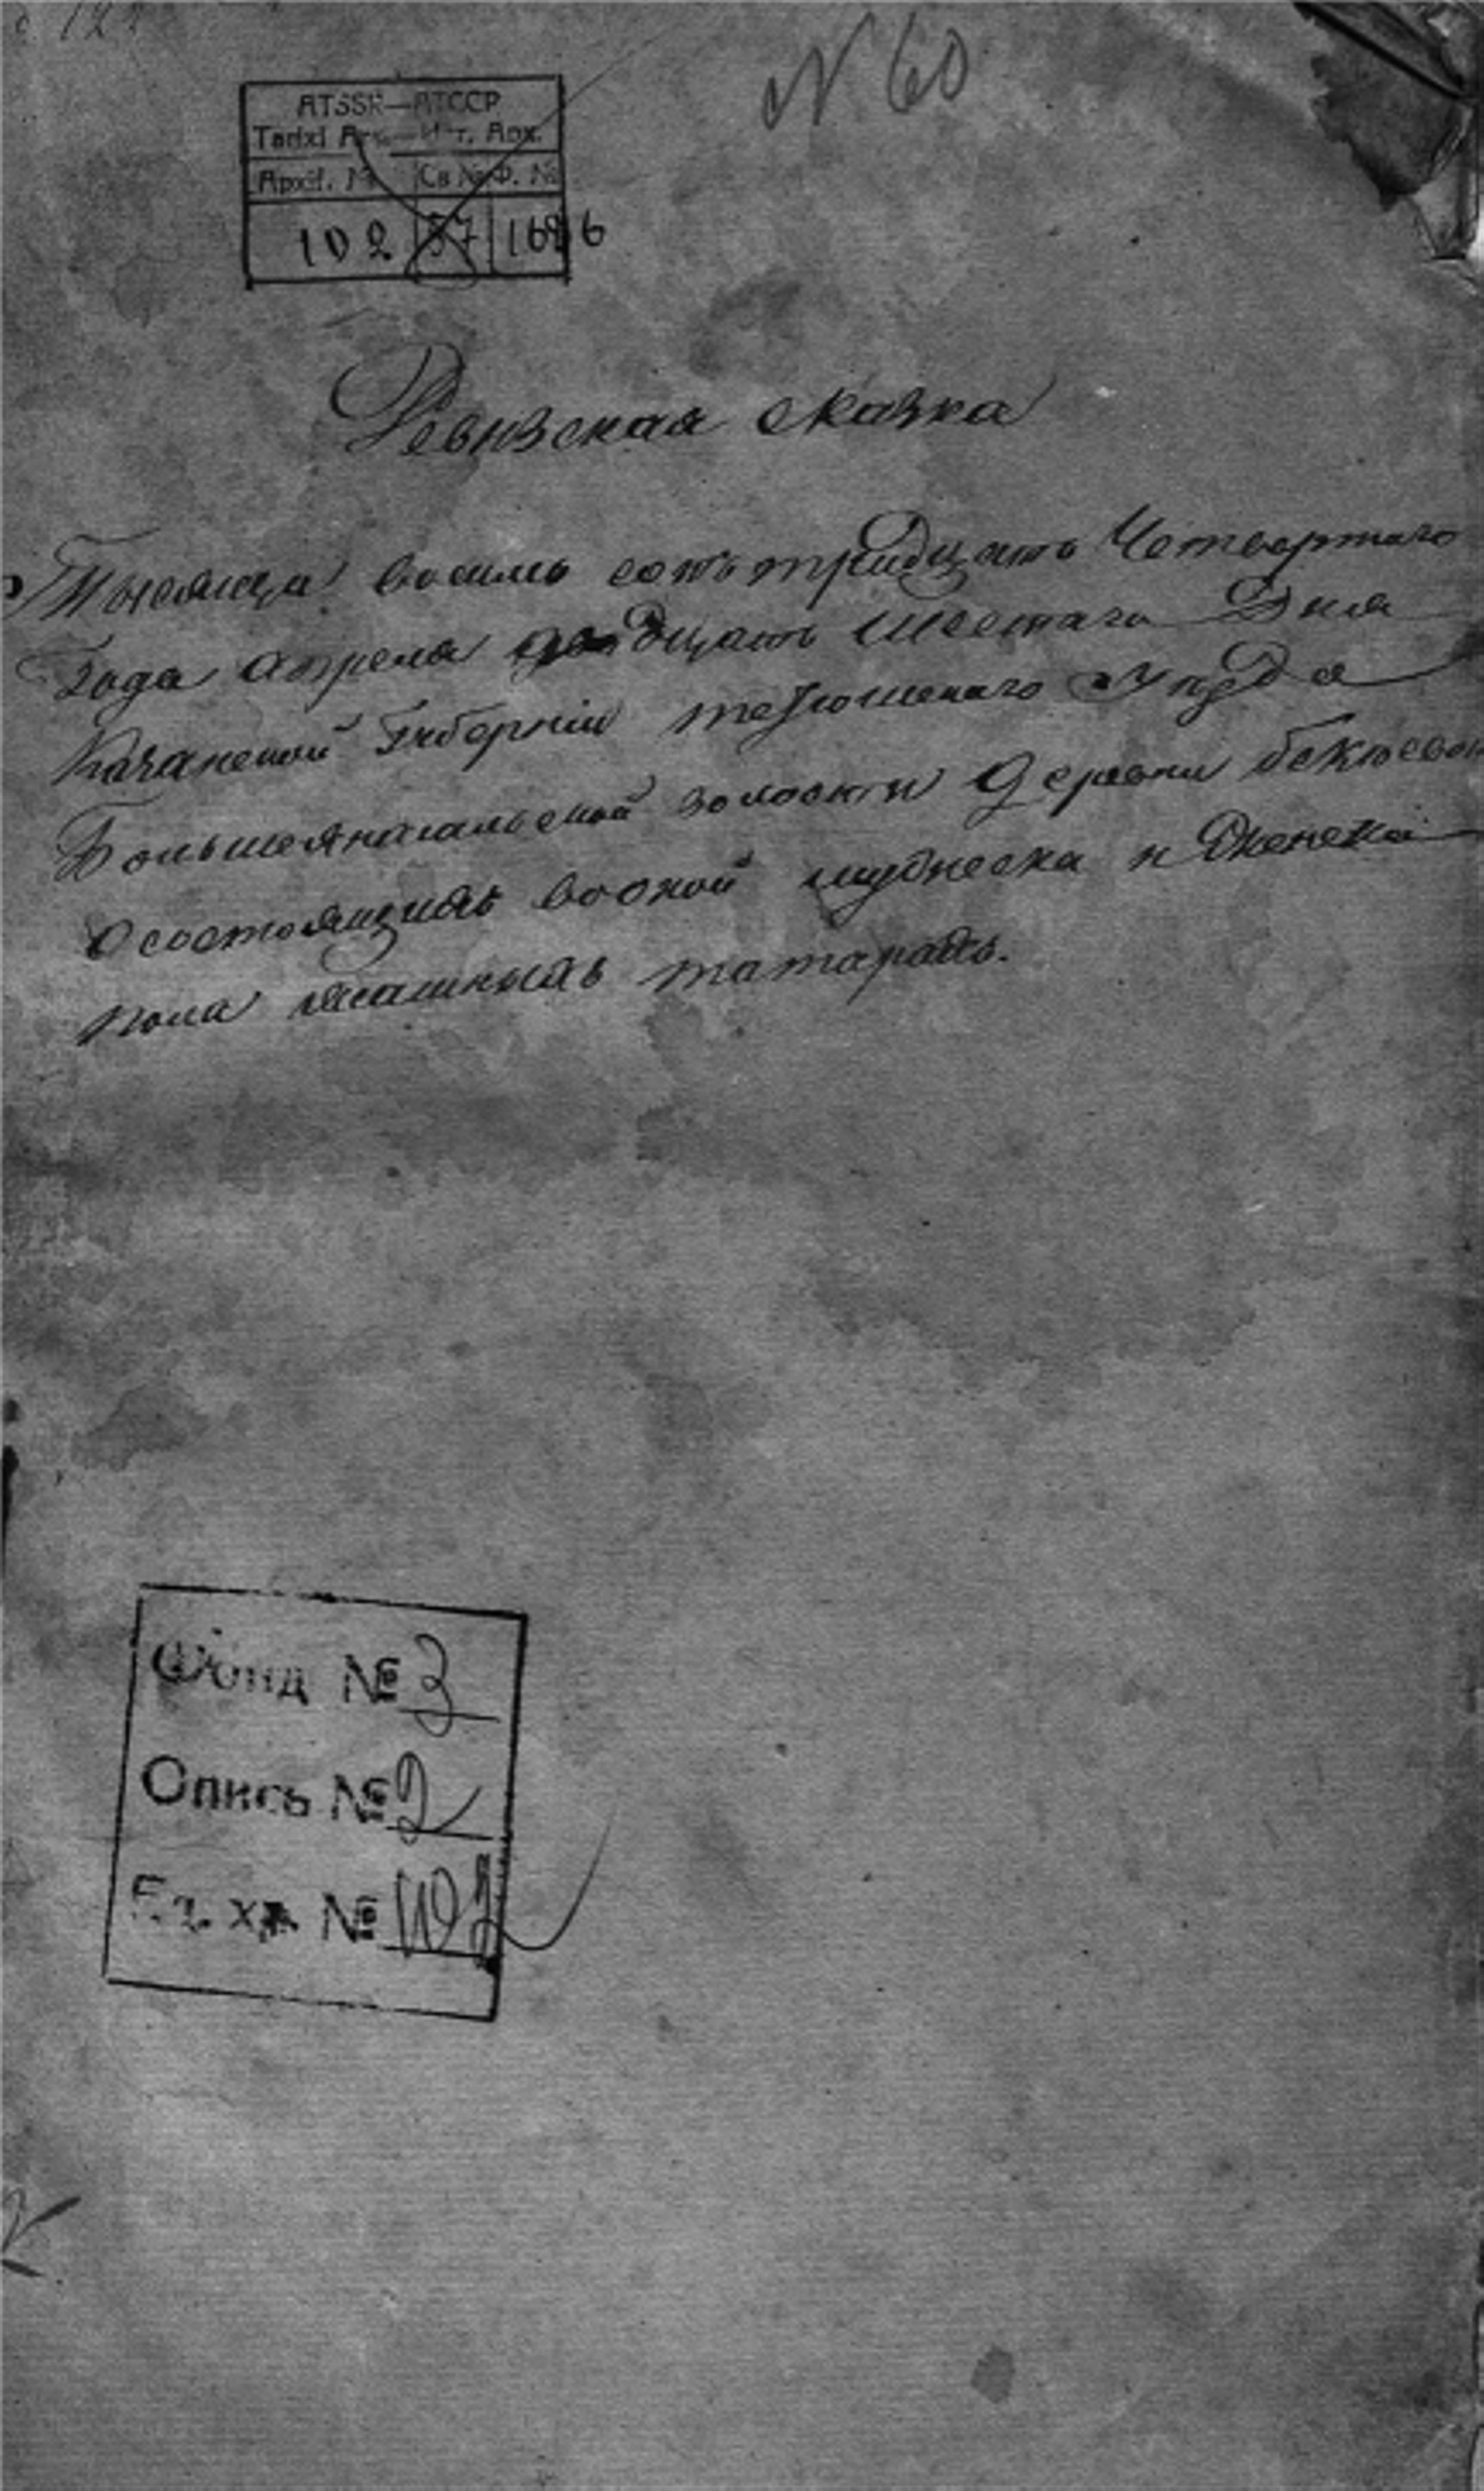 N 60
ATSSR—ATCCP
Tarixi Arx.—Ист. Арх.
Арх. № Св № Ф. №
102 57 1626
Ревизская сказка
Тысяща восимь сотъ тридцать Четвертаго
Года апреля двадцать шестаго Дня
Казанской Губернiи тетюшскаго Уезда
Большеянасальской волости Деревни бекюевой
О состоящихъ во оной мужеска и Женска
пола ясашныхъ татарахъ.
Фонд № 3
Опись № 2
Ед. хр. № 102